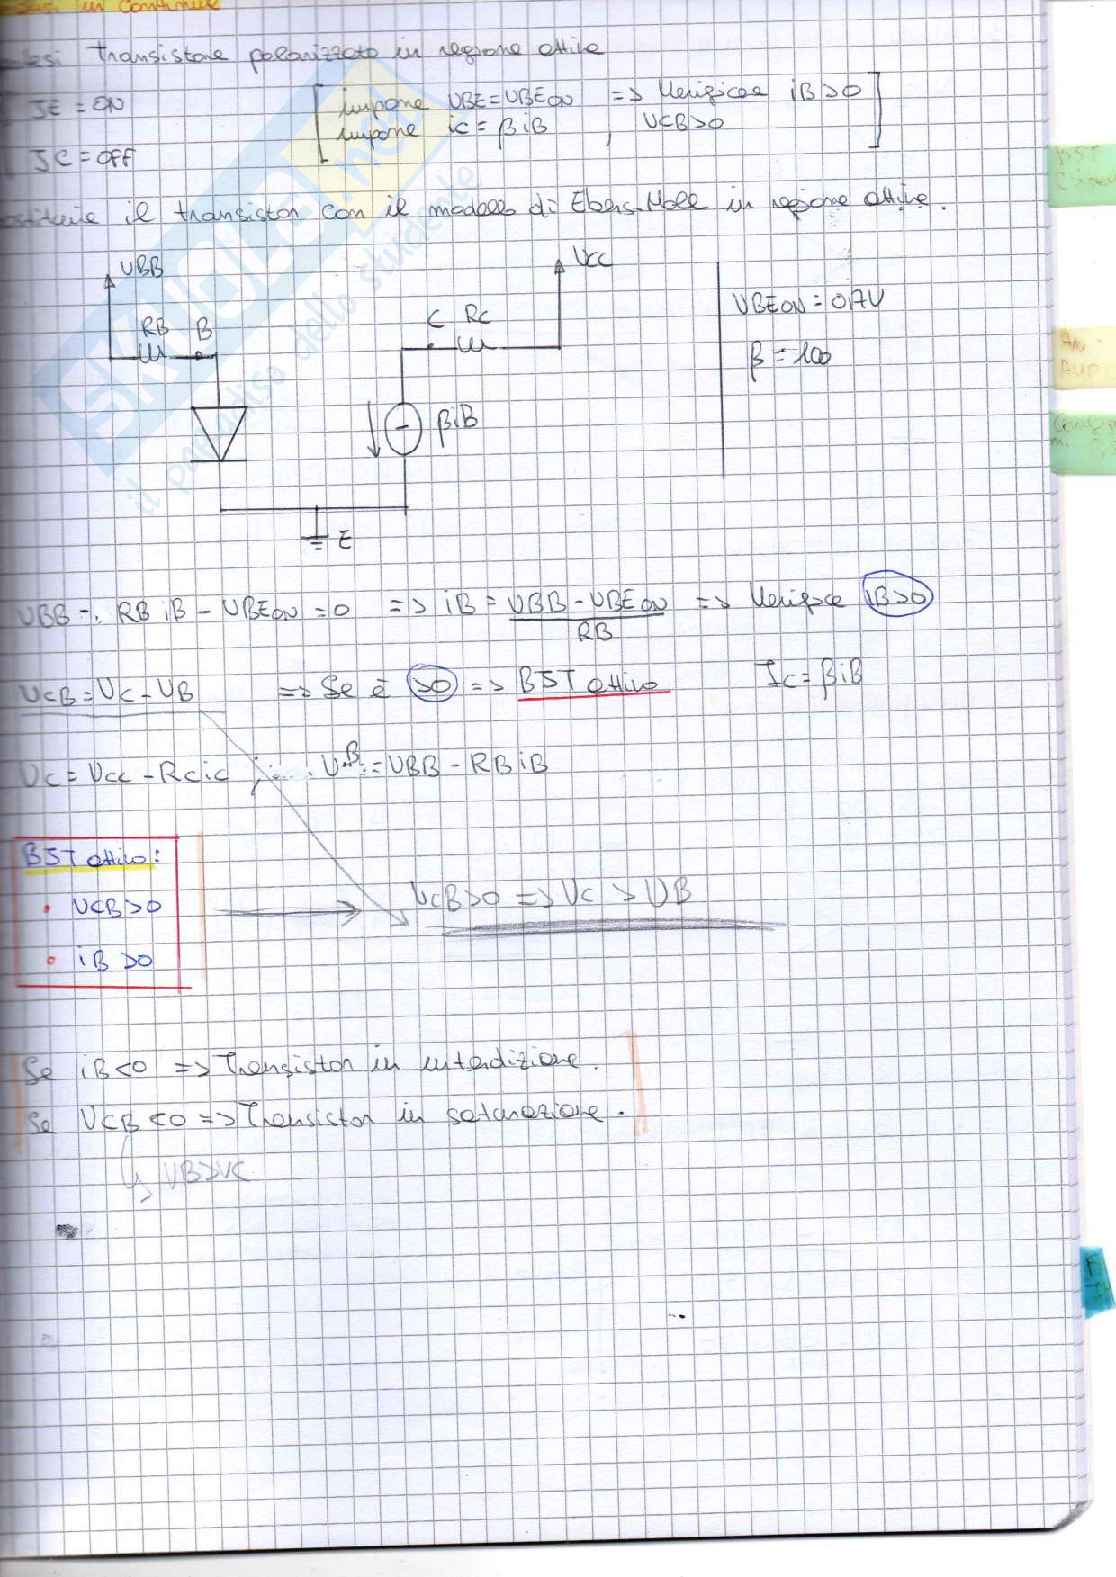 in Continue
Transistore polarizzato in regione attiva
JE = ON
[impone VBE = VBEON => Verificare iB>0
impone ic = βiB , VCB>0]
JC = OFF
il transistor con il modello di Ebers-Moll in regione attiva.
VBB
VCC
RB B
C RC
βiB
E
VBEON = 0,7V
β = 100
VBB - RB iB - VBEON = 0 => iB = VBB - VBEON / RB => Verifica iB>0
VCB = VC - VB => Se è >0 => BJT attivo Ic = βiB
VC = VCC - RC ic ; VB = VBB - RB iB
BJT attivo:
• VCB>0 → VCB>0 => VC > VB
• iB >0
Se iB<0 => Transistor in interdizione.
Se VCB<0 => Transistor in saturazione.
↳ VB>VC
SKUOLA.net
il paradiso dello studente